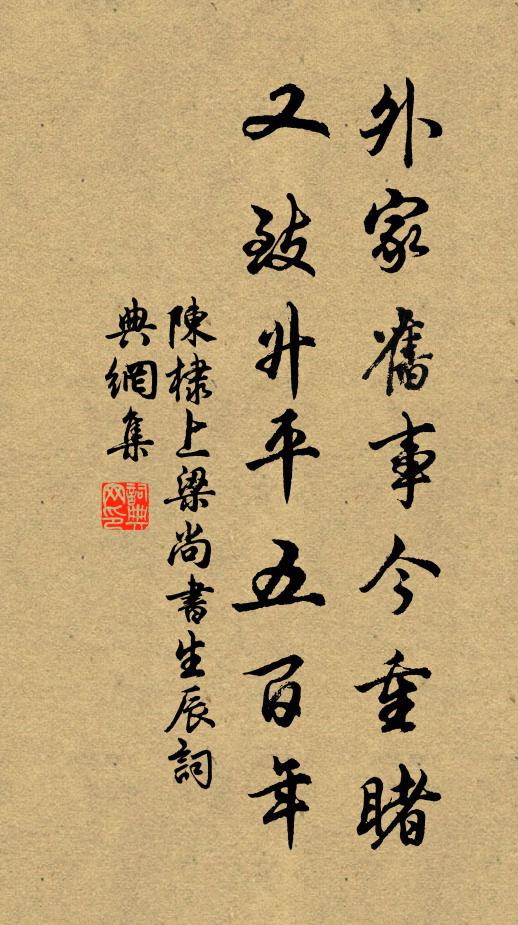 外家舊事今重睹
又致升平五百年
陳棣上梁尚書生辰詞
典網集
詞典
网印